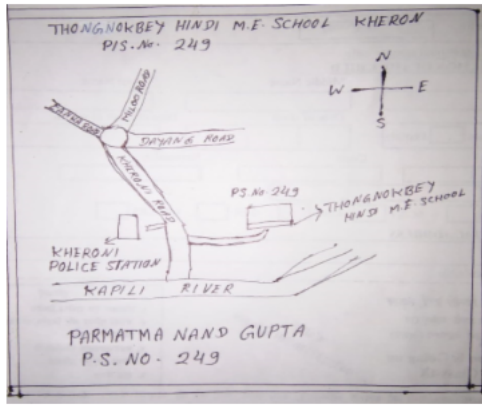 THONGNOKBEY HINDI M.E. SCHOOL KHERON
P/S. No. 249
N
W E
S
HILOO ROAD
DAYANG ROAD
KHERONI ROAD
P.S. No. 249
THONGNOKBEY
HINDI M.E. SCHOOL
KHERONI
POLICE STATION
KAPILI RIVER
PARMATMA NAND GUPTA
P.S. NO. 249